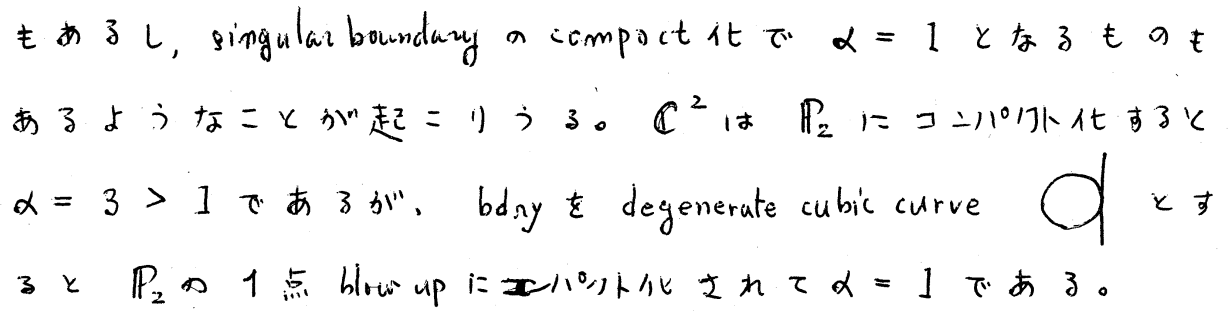 もあるし, singular boundary の compact 化で α = 1 となるものも
あるようなことが起こりうる。 ℂ² は ℙ₂ にコンパクト化すると
α = 3 > 1 であるが、 bdry を degenerate cubic curve とす
ると ℙ₂ の 1 点 blow up にコンパクト化されて α = 1 である。